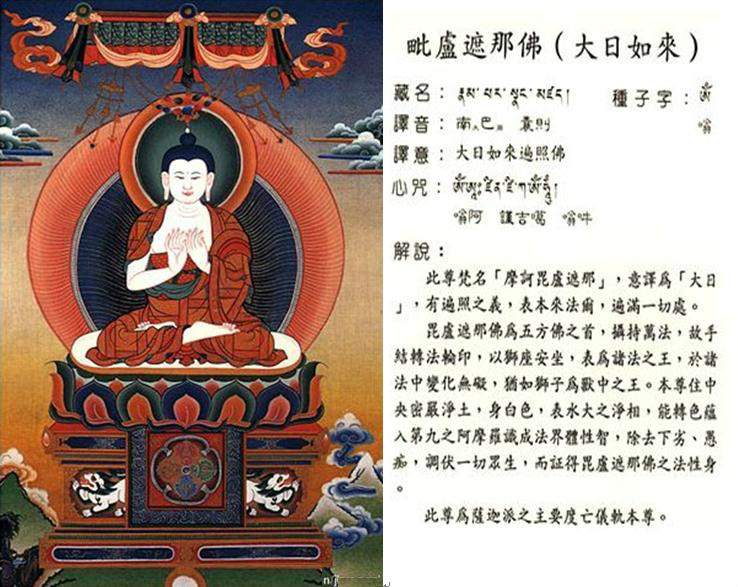 毗盧遮那佛(大日如來)
藏名：རྣམ་པར་སྣང་མཛད། 種子字：ༀ
譯音：南巴 囊則 嗡
譯意：大日如來遍照佛
心咒：
嗡阿 謹吉噶 嗡吽
解說：
此尊梵名「摩訶毘盧遮那」，意譯為「大日
」，有遍照之義，表本來法爾，遍滿一切處。
毘盧遮那佛為五方佛之首，攝持萬法，故手
結轉法輪印，以獅座安坐，表為諸法之王，於諸
法中變化無礙，猶如獅子為獸中之王。本尊住中
央密嚴淨土，身白色，表水大之淨相，能轉色蘊
入第九之阿摩羅識成法界體性智，除去下劣、愚
痴，調伏一切眾生，而証得毘盧遮那佛之法性身
。
此尊為薩迦派之主要度亡儀軌本尊。